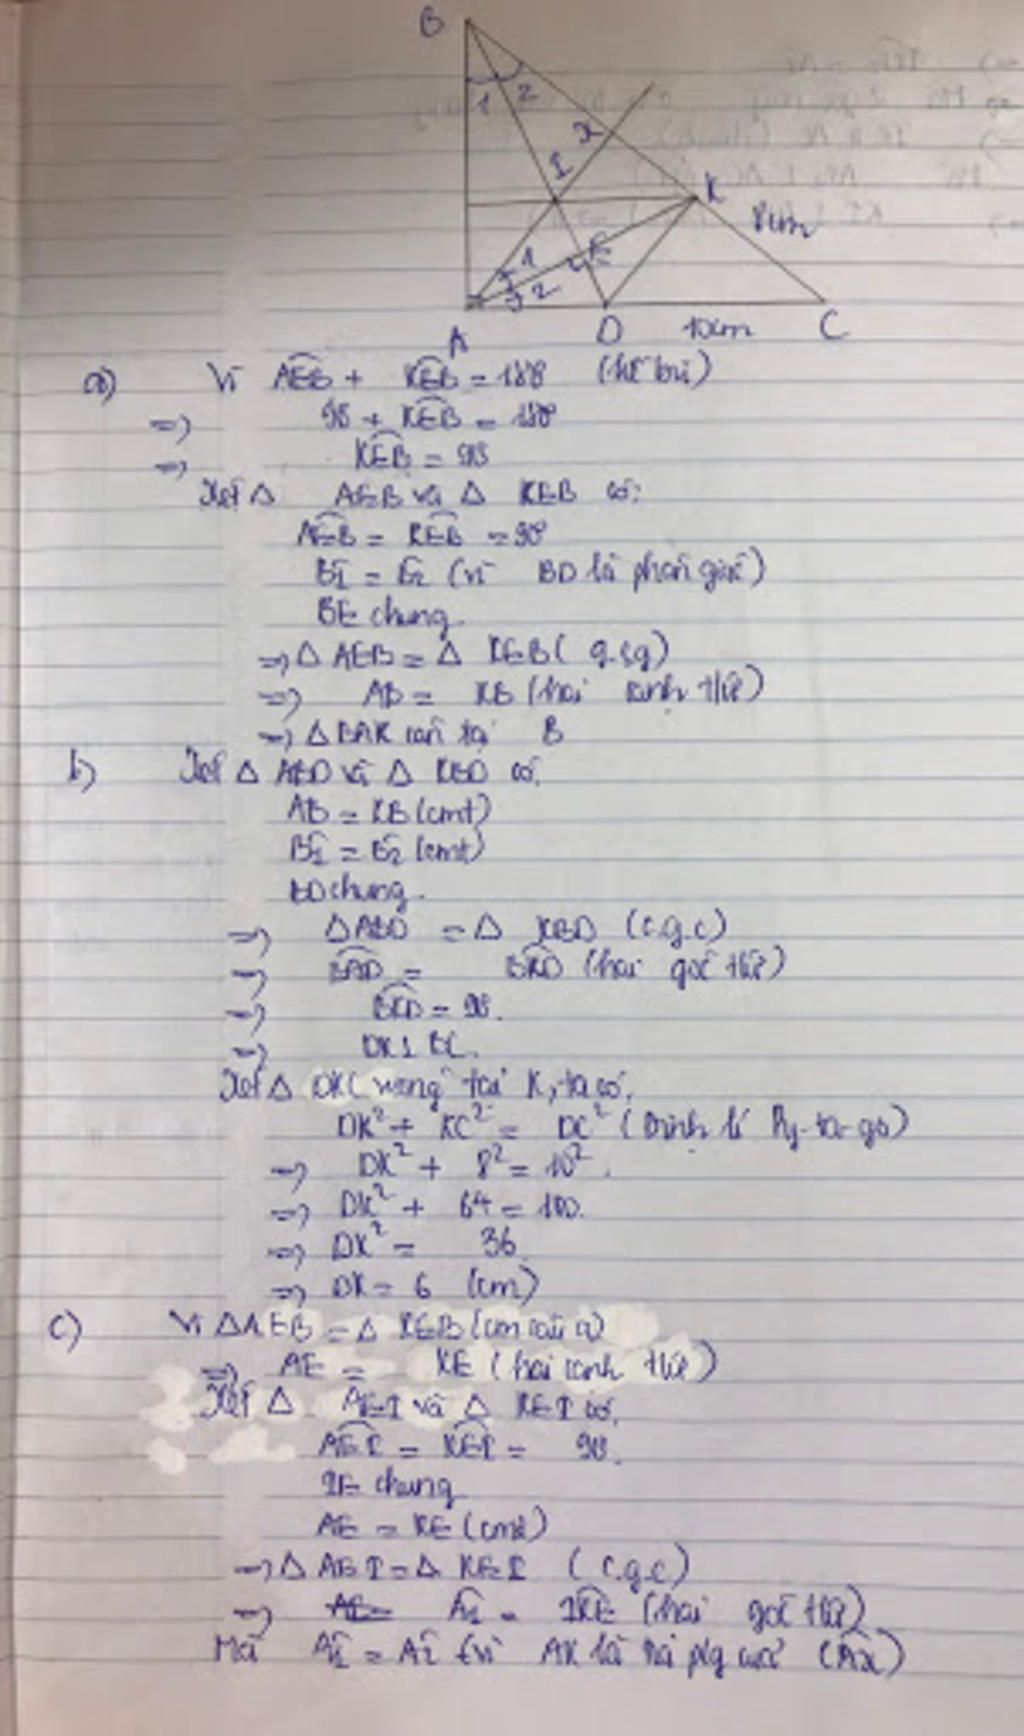 B
1 2
x
I
K
8cm
1
E
2
A D 10cm C
a) Vì AEB + KEB = 180° (kề bù)
=> 90 + KEB = 180°
=> KEB = 90
Xét Δ AEB và Δ KEB có:
AEB = KEB = 90°
B1 = B2 (vì BD là phân giác)
BE chung.
=> Δ AEB = Δ KEB (g.c.g)
=> AB = KB (hai cạnh t/ứ)
=> Δ BAK cân tại B
b) Xét Δ ABD và Δ KBD có,
AB = KB (cmt)
B1 = B2 (cmt)
BD chung.
=> Δ ABD = Δ KBD (c.g.c)
=> BAD = BKD (hai góc t/ứ)
=> BKD = 90.
=> DK ⊥ BC.
Xét Δ DKC vuông tại K, ta có,
DK² + KC² = DC² (Định lí Py-ta-go)
=> DK² + 8² = 10².
=> DK² + 64 = 100.
=> DK² = 36
=> DK = 6 (cm)
c) Vì Δ AEB = Δ KEB (cm câu a)
=> AE = KE (hai cạnh t/ứ)
Xét Δ AEI và Δ KEI có,
AEI = KEI = 90.
IE chung
AE = KE (cmt)
=> Δ AEI = Δ KEI (c.g.c)
=> A1 = IKE (hai góc t/ứ)
Mà A1 = A2 (vì AK là tia p/g của